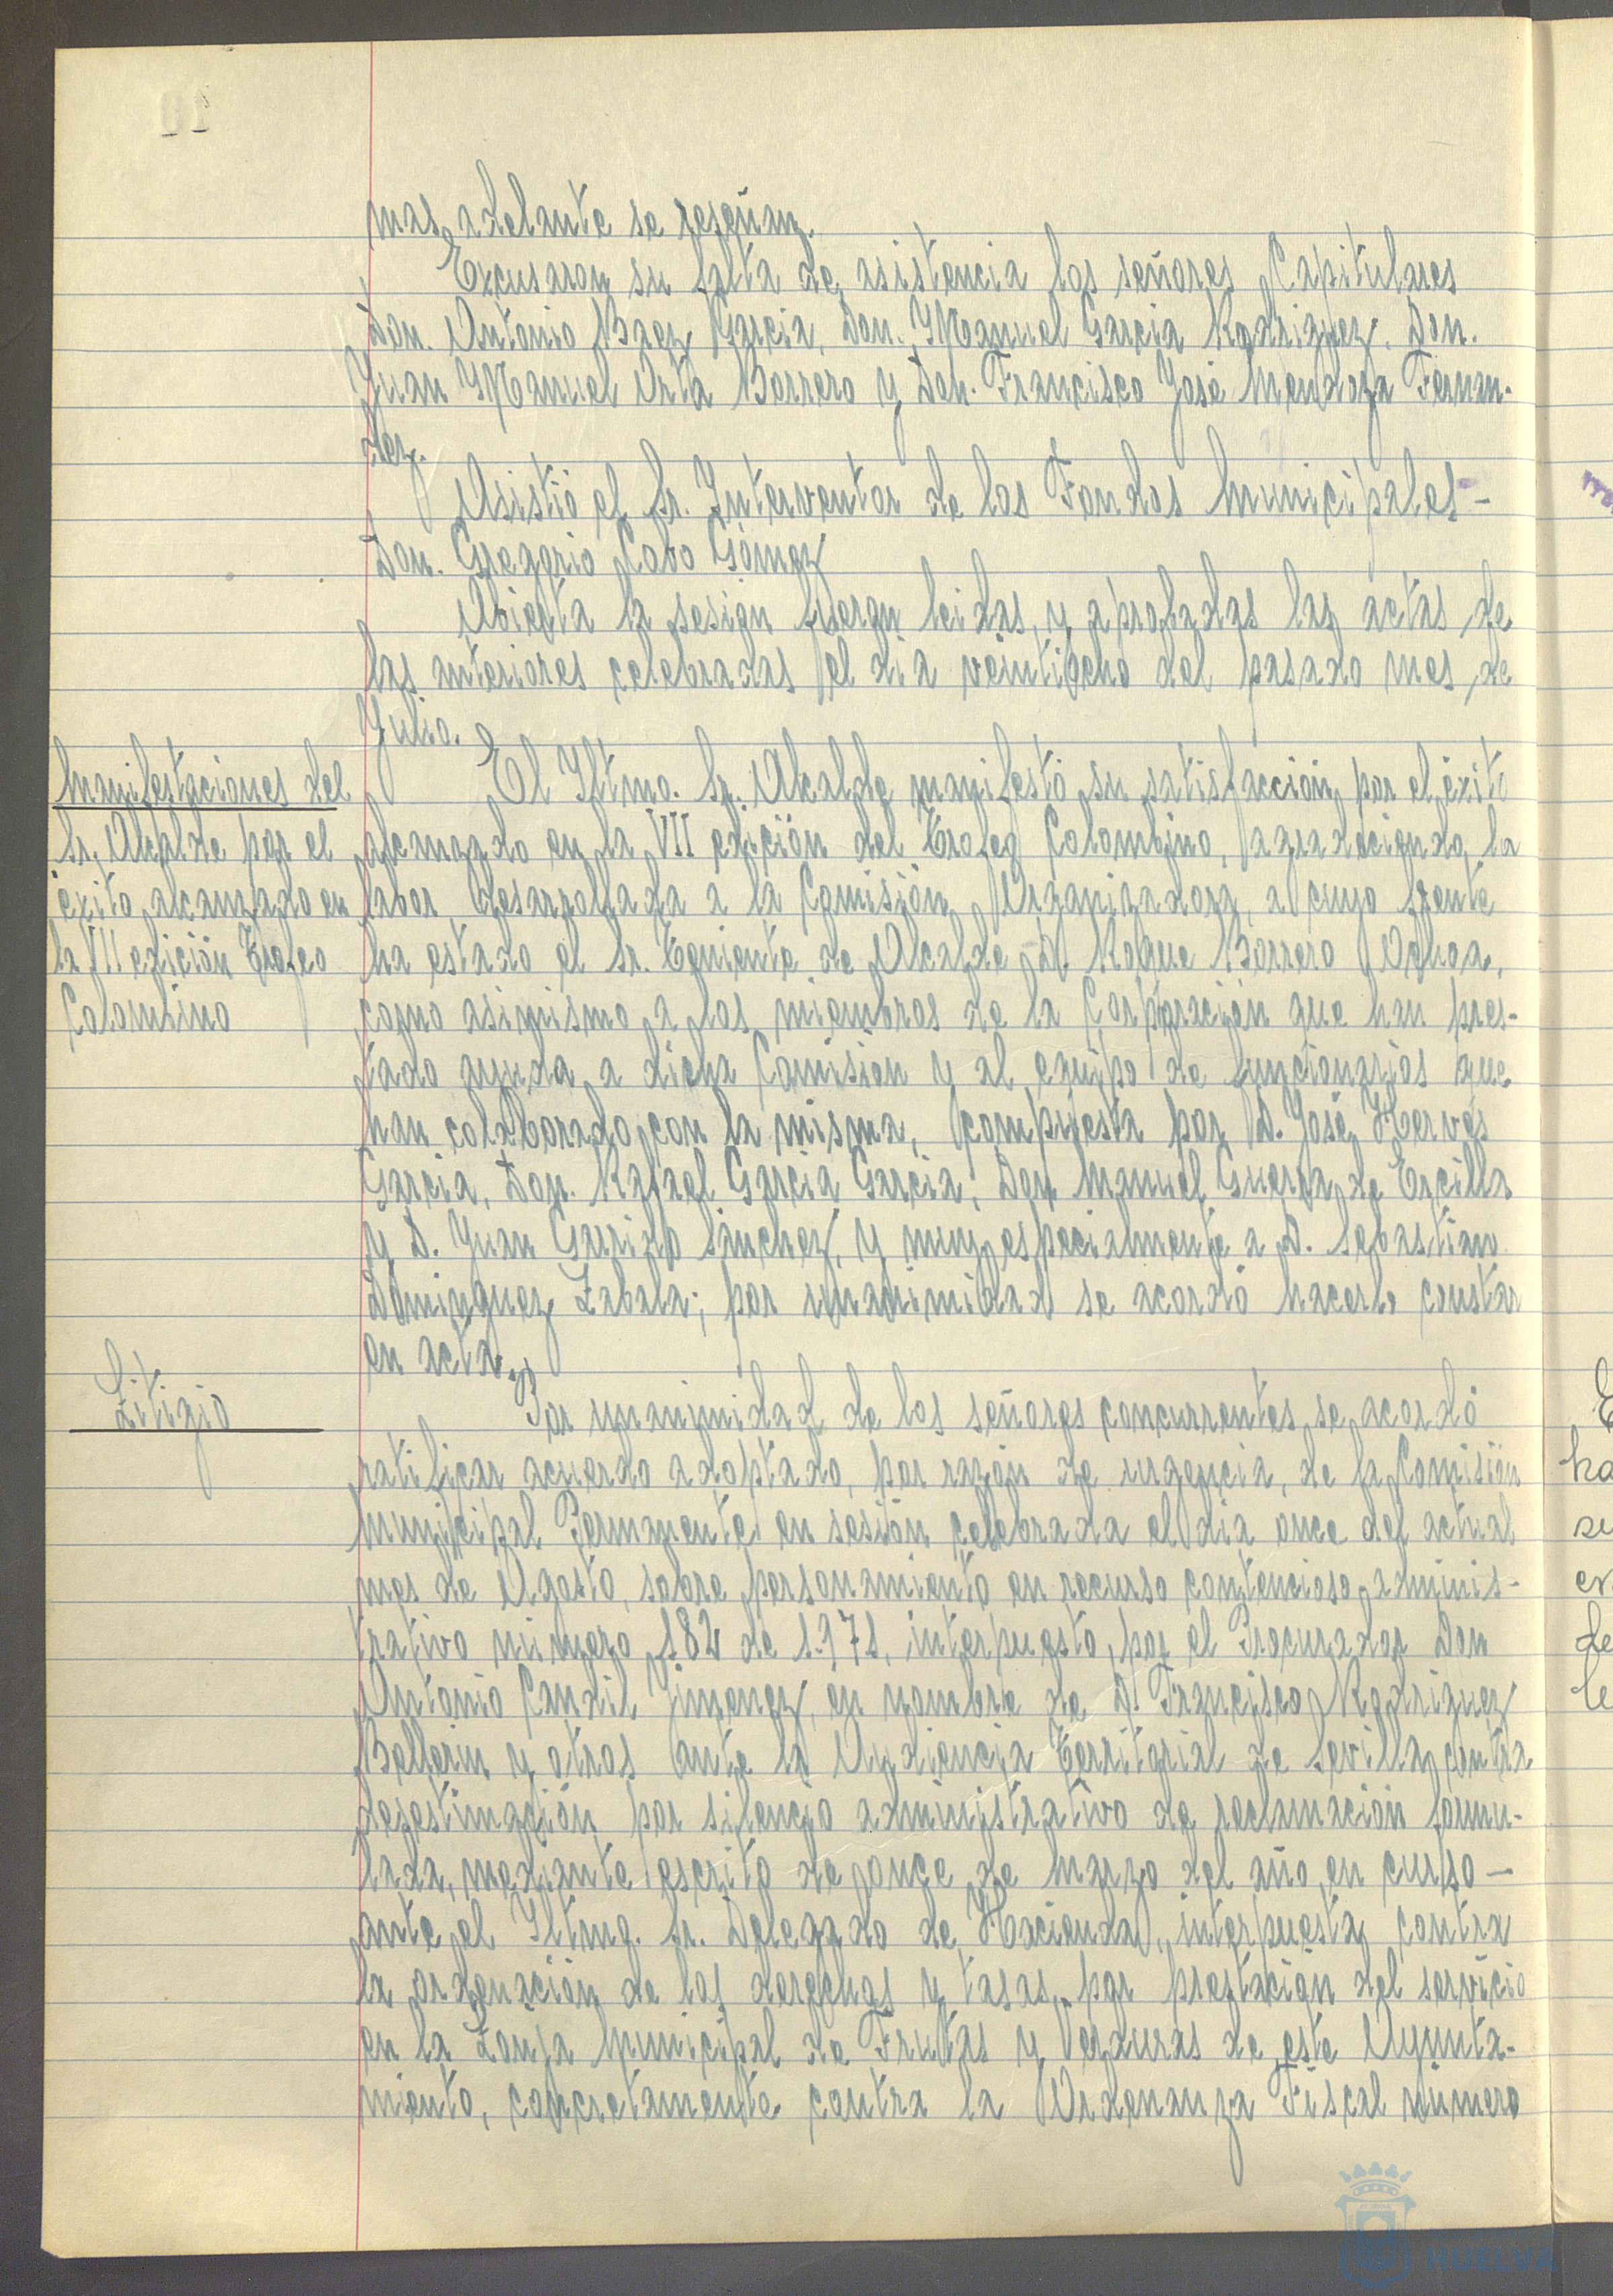 mas adelante se reseñan.
Excusaron su falta de asistencia los señores Capitulares
Don. Antonio Baez Garcia, Don. Manuel Garcia Rodriguez, Don.
Juan Manuel Orta Borrero y Don. Francisco José Mendoza Fernan-
dez.
Asistió el Sr. Interventor de los Fondos Municipales-
Don. Gregorio Cobo Gómez
Abierta la sesión fueron leidas y aprobadas las actas de
las anteriores celebradas el día veintiocho del pasado mes de
Julio.
Manifestaciones del
Sr. Alcalde por el
éxito alcanzado en
la VII edición Trofeo
Colombino
El Iltmo. Sr. Alcalde manifestó su satisfacción por el éxito
alcanzado en la VII edición del Trofeo Colombino, agradeciendo la
labor desarrollada a la Comisión Organizadora, a cuyo frente
ha estado el Sr. Teniente de Alcalde D. Roque Borrero Ochoa,
como asimismo a los miembros de la Corporación que han pres-
tado ayuda a dicha Comisión y al equipo de funcionarios que
han colaborado con la misma, compuesta por D. José Hervás
Garcia, Don. Rafael Garcia Garcia, Don Manuel Guerra de Ercilla
y D. Juan Garrido Sánchez, y muy especialmente a D. Sebastian
Dominguez Zabala; por unanimidad se acordó hacerlo constar
en acta.
Litigio
Por unanimidad de los señores concurrentes se acordó
ratificar acuerdo adoptado, por razón de urgencia, de la Comisión
Municipal Permanente en sesión celebrada el día once del actual
mes de Agosto, sobre personamiento en recurso contencioso adminis-
trativo número 182 de 1.971, interpuesto, por el Procurador Don
Antonio Candil Jimenez, en nombre de D. Francisco Rodriguez
Bellerin y otros ante la Audiencia Territorial de Sevilla contra
desestimación por silencio administrativo de reclamación formu-
lada, mediante escrito de once de Marzo del año en curso-
ante el Iltmo. Sr. Delegado de Hacienda, interpuesta contra
la ordenación de los derechos y tasas por prestación del servicio
en la Lonja Municipal de Frutas y Verduras de este Ayunta-
miento, concretamente contra la Ordenanza Fiscal número
HUELVA